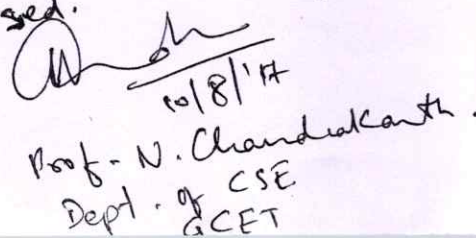 sed.
10/8/'17
Prof. N. Chandrakanth.
Dept. of CSE
GCET